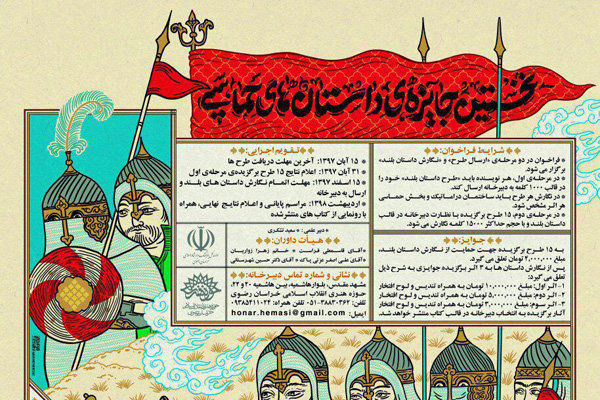 نخستین جایزه‌ی داستان‌های حماسی
شرایط فراخوان:
* فراخوان در دو مرحله‌ی «ارسال طرح» و «نگارش داستان بلند»
برگزار می شود.
* در مرحله‌ی اول، هنرمند باید «طرح داستان بلند» خود را
در قالب ۱۰۰۰ کلمه به دبیرخانه ارسال کند.
* در نگارش هر طرح باید ساختمان دراماتیک و بخش حماسی
اثر مشخص شود.
* در مرحله‌ی دوم، ۱۵ طرح برگزیده با نظارت دبیرخانه در قالب
داستان بلند و با حجم حداکثر ۱۵۰۰۰ کلمه نگارش می شود.
جوایز:
به ۱۵ طرح برگزیده جهت حمایت از نگارش داستان بلند،
مبلغ ۲,۰۰۰,۰۰۰ تومان تعلق می گیرد.
پس از نگارش داستان ها به ۳ اثر برگزیده جوایزی به شرح ذیل
تعلق می گیرد:
۱- اثر اول: مبلغ ۱۰,۰۰۰,۰۰۰ تومان به همراه تندیس و لوح افتخار
۲- اثر دوم: مبلغ ۵,۰۰۰,۰۰۰ تومان به همراه تندیس و لوح افتخار
۳- اثر سوم: مبلغ ۳,۰۰۰,۰۰۰ تومان به همراه تندیس و لوح افتخار
آثار برگزیده به انتخاب دبیرخانه در قالب کتاب منتشر خواهد شد.
تقویم اجرایی:
* ۱۵ آبان ۱۳۹۷: آخرین مهلت دریافت طرح ها
* ۳۱ آبان ۱۳۹۷: اعلام نتایج ۱۵ طرح برگزیده‌ی مرحله‌ی اول
* ۱۵ اسفند ۱۳۹۷: مهلت اتمام نگارش داستان های بلند و
ارسال به دبیرخانه
* اردیبهشت ۱۳۹۸: مراسم پایانی و اعلام نتایج نهایی، همراه
با رونمایی از کتاب های منتشر شده
* دبیر علمی: سعید تشکری
هیات داوران:
آقای قاسمعلی فراست * خانم زهرا زواریان
آقای علی اصغر عزتی پاک * آقای دکتر حسین شهرستانی
نشانی و شماره تماس دبیرخانه:
مشهد مقدس، بلوار هاشمیه، بین هاشمیه ۲۰ و ۲۲،
حوزه هنری انقلاب اسلامی خراسان رضوی
تلفن: ۳۸۸۳۰۳۶۲-۰۵۱
ایمیل: honar.hemasi@gmail.com